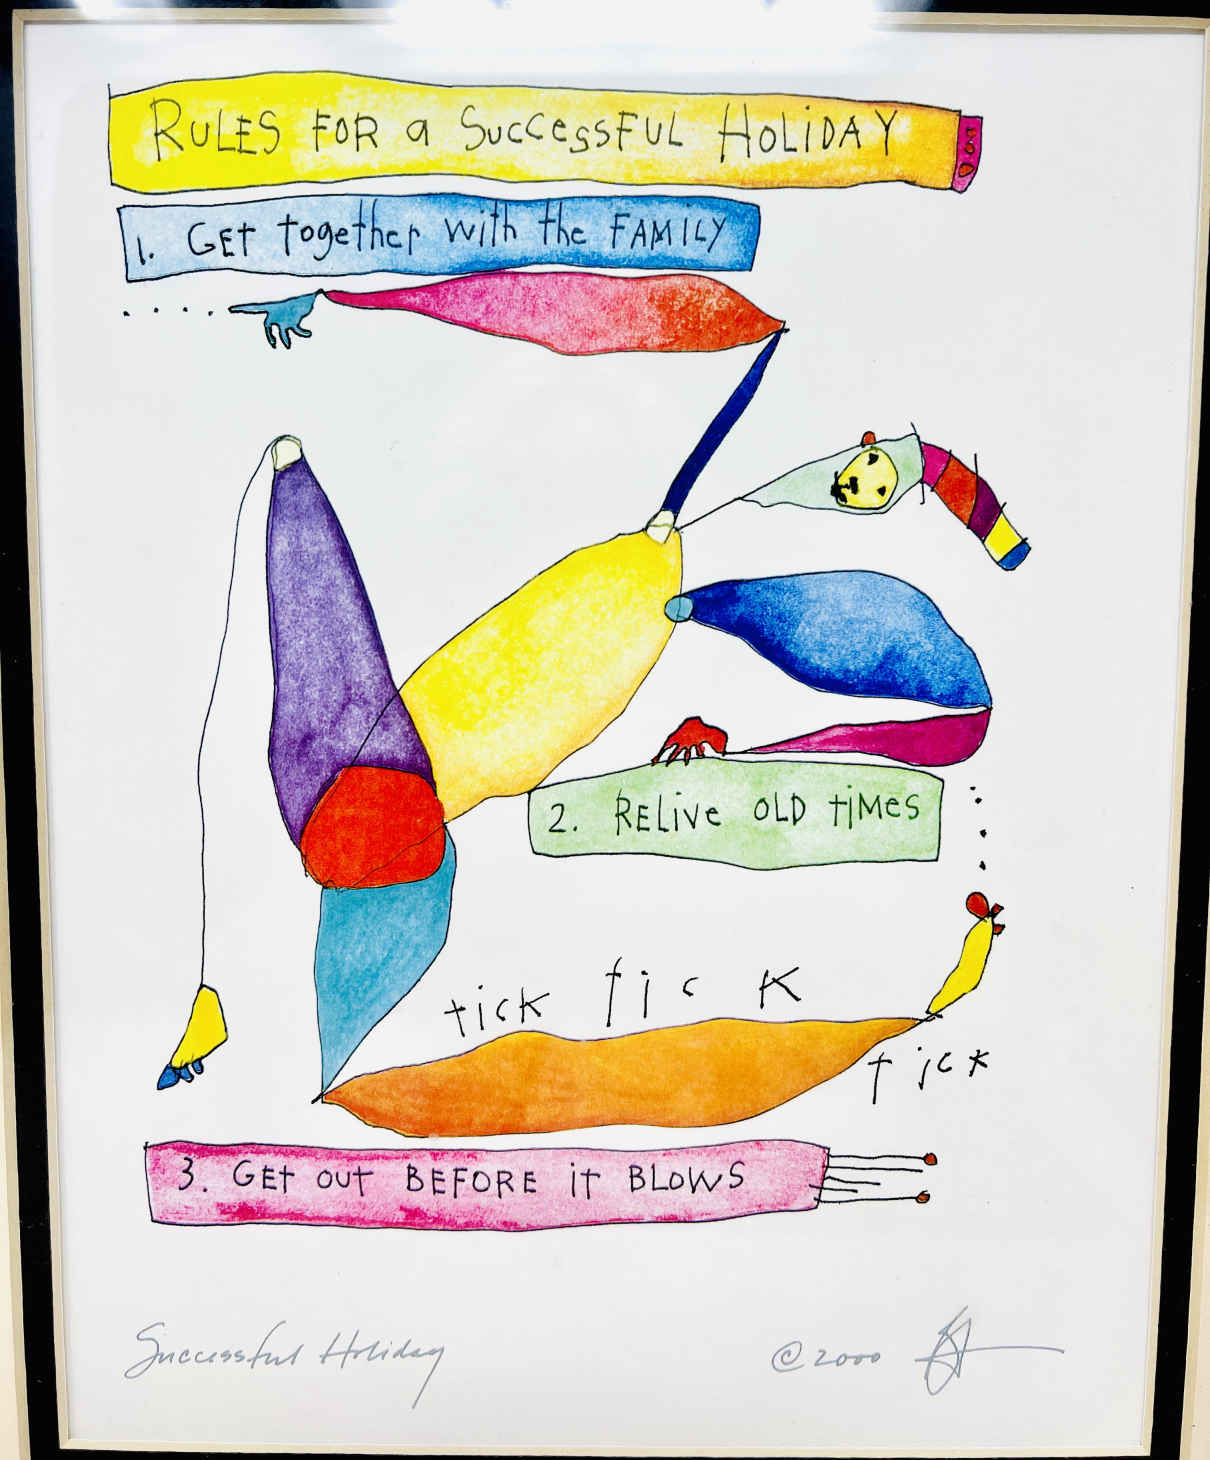 RULES FOR a SuccessFUL HOLiDAY
1. GEt together with the FAMiLY
2. RELive OLD tiMes
tick tick
tick
3. GEt out BEFORE it BLOWS
Successful Holiday
© 2000